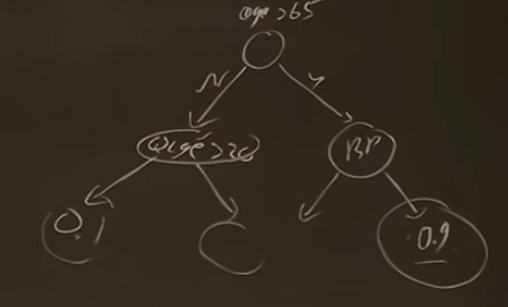 age >65
N Y
age >20
BP
0.1
0.9